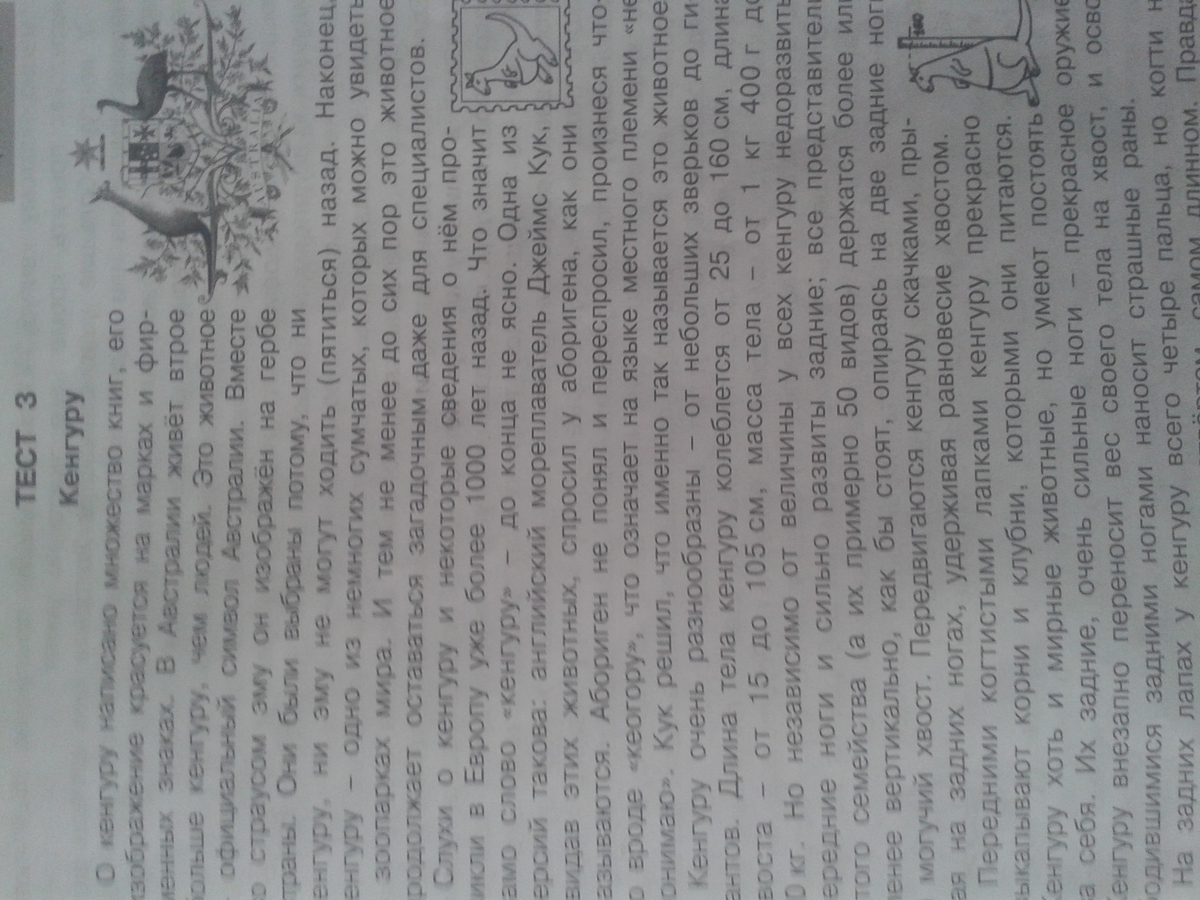 ТЕСТ 3
Кенгуру
О кенгуру написано множество книг, его
изображение красуется на марках и фир-
менных знаках. В Австралии живёт втрое
больше кенгуру, чем людей. Это животное
официальный символ Австралии. Вместе
со страусом эму он изображён на гербе
страны. Они были выбраны потому, что ни
енгуру, ни эму не могут ходить (пятиться) назад. Наконец,
енгуру – одно из немногих сумчатых, которых можно увидеть
зоопарках мира. И тем не менее до сих пор это животное
родолжает оставаться загадочным даже для специалистов.
Слухи о кенгуру и некоторые сведения о нём про-
икли в Европу уже более 1000 лет назад. Что значит
амо слово «кенгуру» – до конца не ясно. Одна из
ерсий такова: английский мореплаватель Джеймс Кук,
видав этих животных, спросил у аборигена, как они
азываются. Абориген не понял и переспросил, произнеся что-
о вроде «кеогору», что означает на языке местного племени «не
онимаю». Кук решил, что именно так называется это животное.
Кенгуру очень разнообразны – от небольших зверьков до ги-
антов. Длина тела кенгуру колеблется от 25 до 160 см, длина
воста – от 15 до 105 см, масса тела – от 1 кг 400 г до
0 кг. Но независимо от величины у всех кенгуру недоразвиты
ередние ноги и сильно развиты задние; все представители
того семейства (а их примерно 50 видов) держатся более или
енее вертикально, как бы стоят, опираясь на две задние ноги
могучий хвост. Передвигаются кенгуру скачками, пры-
ая на задних ногах, удерживая равновесие хвостом.
160
Передними когтистыми лапками кенгуру прекрасно
ыкапывают корни и клубни, которыми они питаются.
Кенгуру хоть и мирные животные, но умеют постоять
а себя. Их задние, очень сильные ноги – прекрасное оружие
Кенгуру внезапно переносит вес своего тела на хвост, и осво
одившимися задними ногами наносит страшные раны.
На задних лапах у кенгуру всего четыре пальца, но когти н
самом длинном. Правда
AUSTRALIA